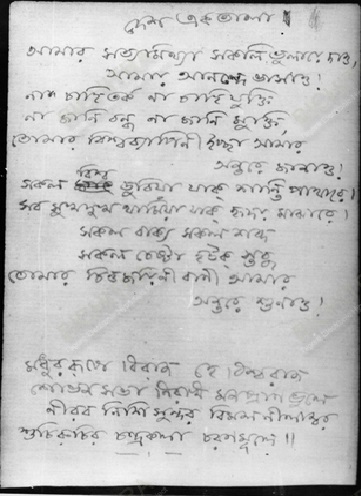 দেশ একতালা
আমার সত্যমিথ্যা সকলি ভুলায়ে দাও,
আমার আনন্দে ভাসাও!
না চাহি তর্ক না চাহি যুক্তি
না জানি বন্ধ না জানি মুক্তি,
তোমার বিশ্বব্যাপিনী ইচ্ছা আমার
অন্তরে জাগাও!
সকল বিশ্ব ডুবিয়া যাক্ শান্তি পাথারে!
সব সুখদুখ থামিয়া যাক্ হৃদয় মাঝারে!
সকল বাক্য সকল শব্দ
সকল চেষ্টা হউক্ স্তব্ধ
তোমার চিত্তজয়িনী বাণী আমার
অন্তরে শুনাও!
মধুর রূপে বিরাজ হে বিশ্বরাজ
শোভন সভা নিরখি মন প্রাণ ভুলে
নীরব নিশি সুন্দর বিমল নীলাম্বর
শুচিরুচির চন্দ্রকলা চরণমূলে॥